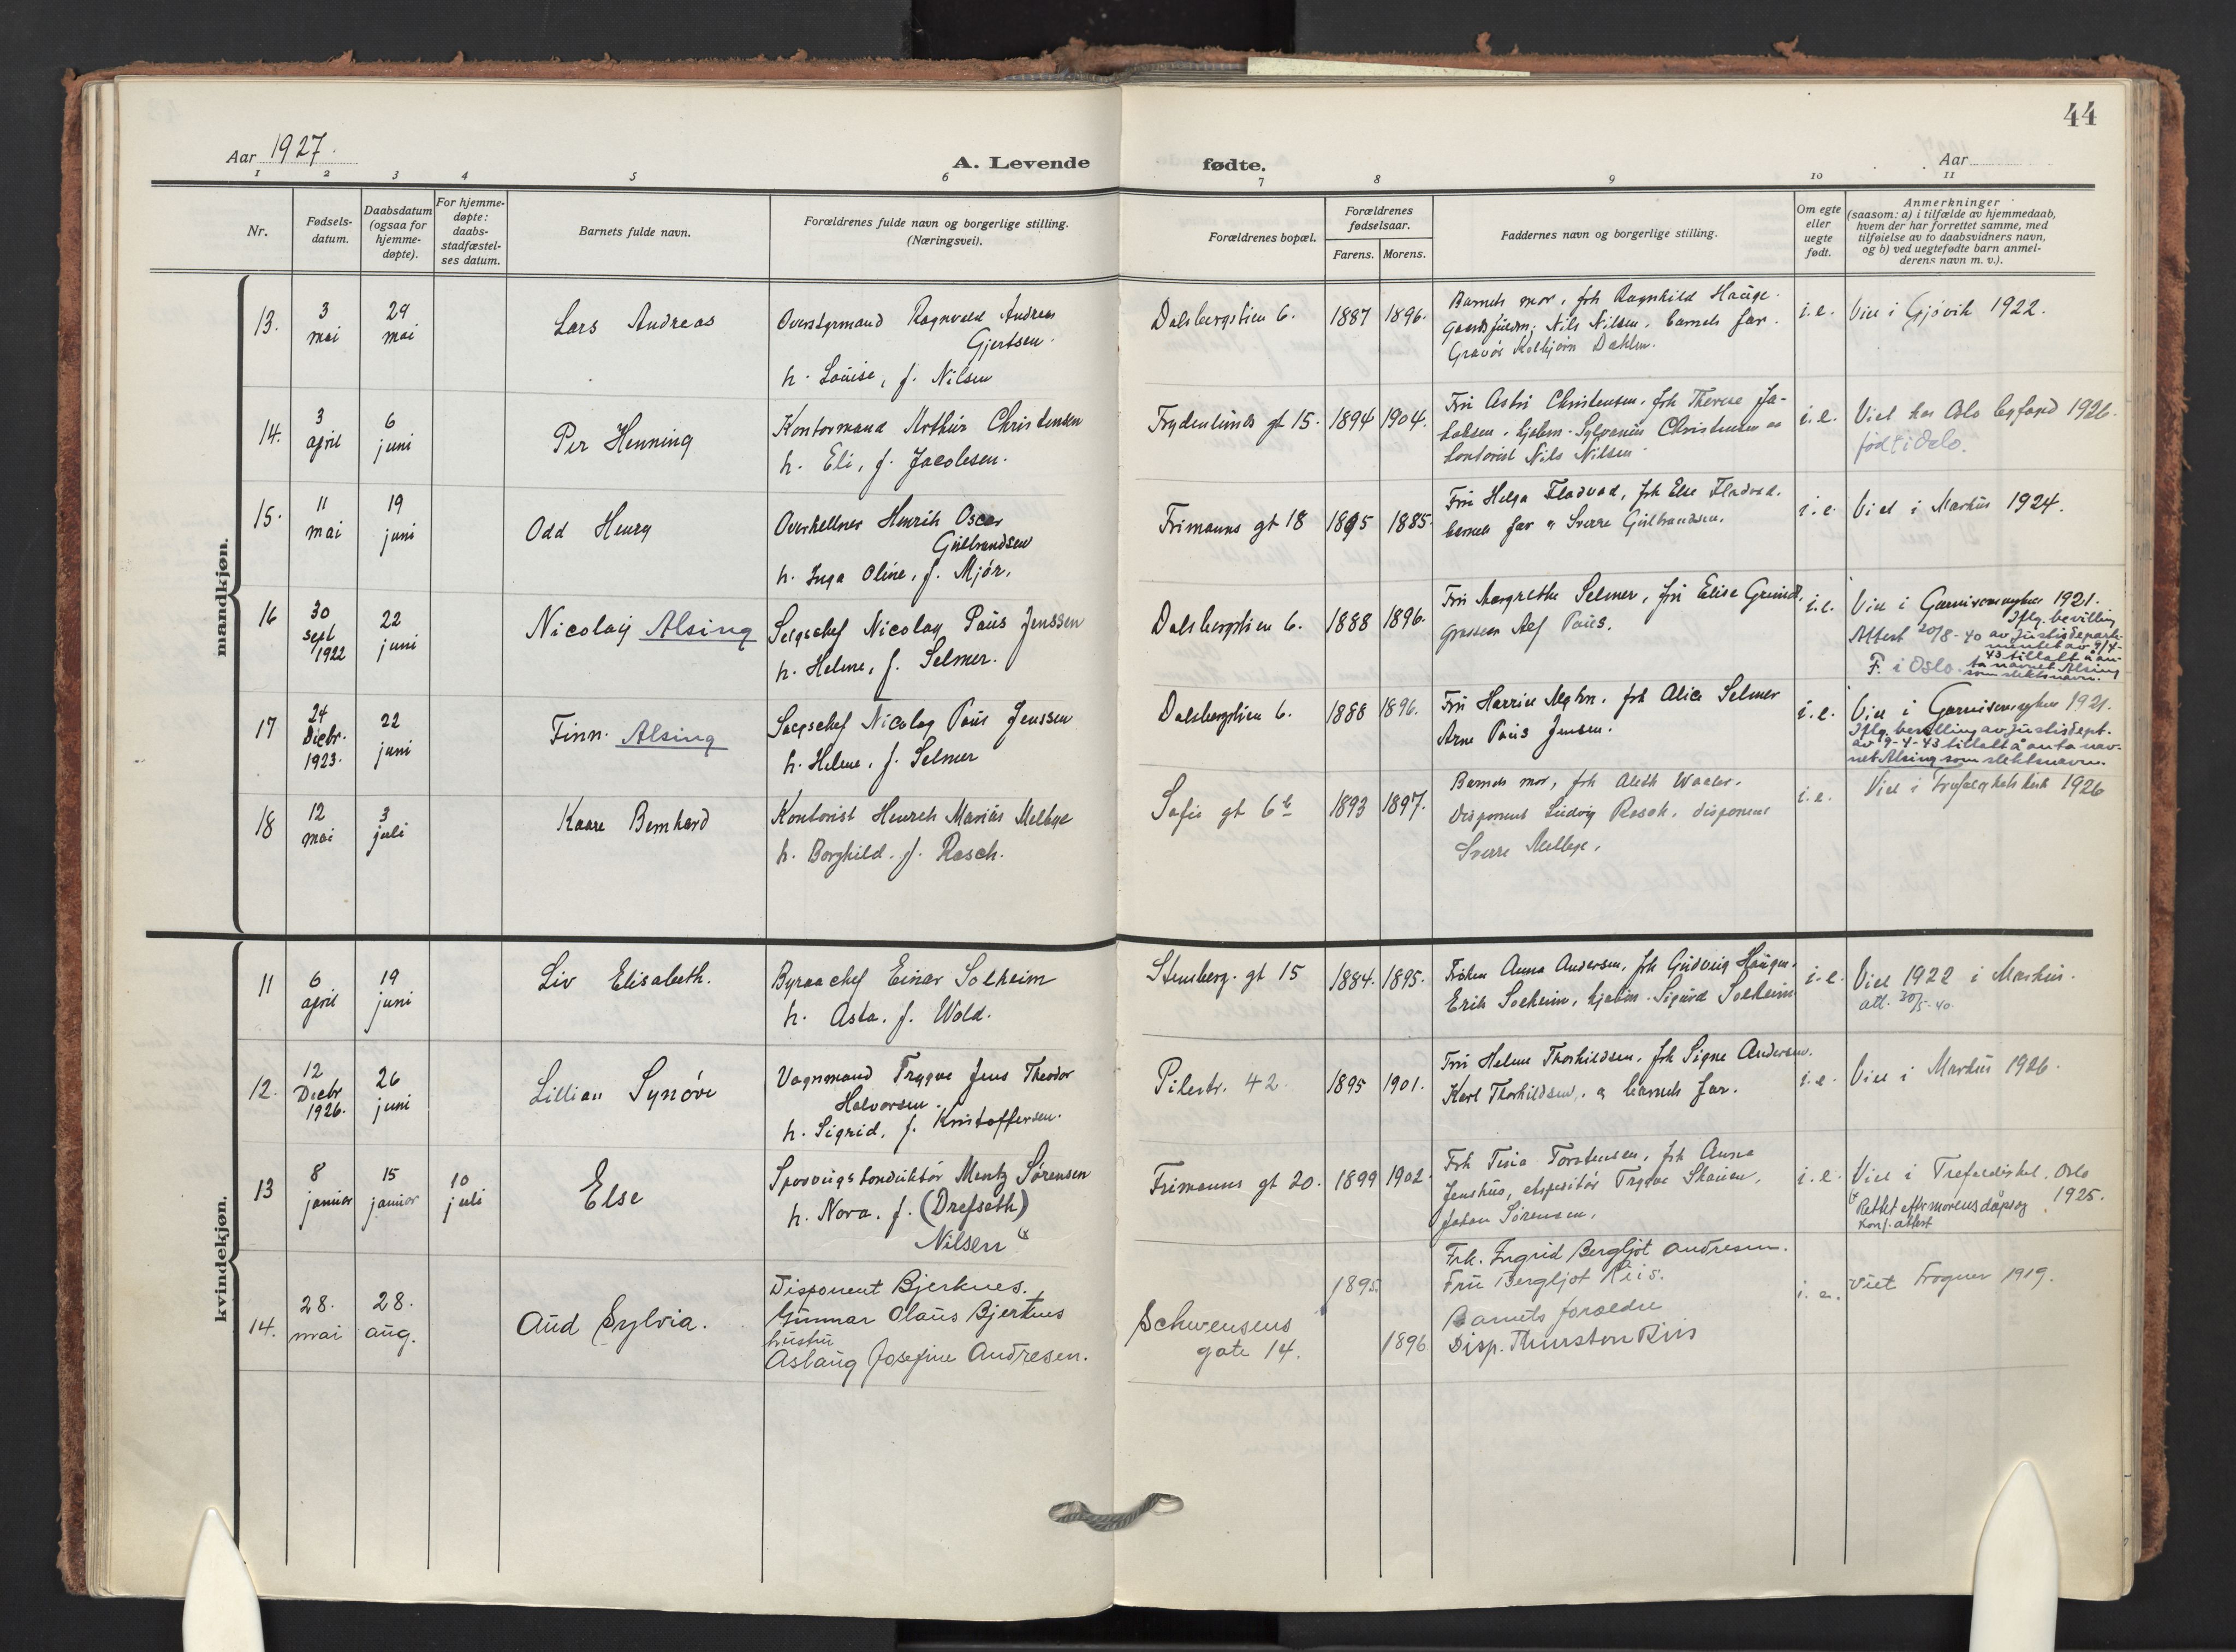 44
Aar 1927.
A. Levende
fødte.
Aar
1 2 3 4 5 6 7 8 9 10 11
Nr.
Fødsels-
datum.
Daabsdatum
(ogsaa for
hjemme-
døpte).
For hjemme-
døpte:
daabs-
stadfæstel-
ses datum.
Barnets fulde navn.
Forældrenes fulde navn og borgerlige stilling.
(Næringsvei).
Forældrenes bopæl.
Forældrenes
fødselsaar.
Farens. Morens.
Faddernes navn og borgerlige stilling.
Om egte
eller
uegte
født.
Anmerkninger
(saasom: a) i tilfælde av hjemmedaab,
hvem der har forrettet samme, med
tilføielse av to daabsvidners navn,
og b) ved uegtefødte barn anmel-
derens navn m. v.).
mandkjøn.
13.
3
mai
29
mai
Lars Andreas
Overstyrmand Ragnvald Andreas
Gjertsen.
h. Louise, f. Nilsen
Dalsbergstien 6.
1887 1896.
Barnets mor, frk Ragnhild Hauge.
Nils Nilsen, barnets far.
Gravør Kolbjørn Dahlen.
i.e.
Viet i Gjøvik 1922.
14.
3
april
6
juni
Per Henning
Kontormand Arthur Christensen
h. Eli, f. Jacobsen.
Frydenlunds gt 15.
1894 1904.
Fru Astri Christensen, frk Therese Ja-
kobsen, Christensen
kontorist Nils Nilsen
i.e.
Viet hos Oslo byfogd 1926.
født i Oslo.
15.
11
mai
19
juni
Odd Henry
Overkellner Henrik Oscar
Gulbrandsen
h. Inga Oline, f. Mjör.
Frimanns gt 18
1895 1885.
Fru Helga Fladvad, frk Else Fladvad.
barnets far og Sverre Gulbrandsen.
i.e.
Viet i Markus 1924.
16
30
sept
1922
22
juni
Nicolay Alsing
Salgschef Nicolay Paus Jenssen
h. Helene, f. Selmer.
Dalsbergstien 6.
1888 1896.
Fru Margrethe Selmer, fru Elise
Grosserer Alf Paus.
i.e.
Viet i Garnisonsmgken 1921.
Iflg. bevilling
Attest 20/8-40 av Justisdeparte-
mentet av 9/4-
43 tillatt å an-
F. i Oslo. ta navnet Alsing
som slektsnavn.
17
24
Decbr.
1923.
22
juni
Finn. Alsing
Salgschef Nicolay Paus Jenssen
h. Helene, f. Selmer
Dalsbergstien 6.
1888 1896.
Fru Harriet frk Alice Selmer
Arne Paus Jensen.
i.e.
Viet i Garnisonsmgken 1921.
Iflg. bevilling av Justisdept.
av 9-4-43 tillatt å anta nav-
net Alsing som slektsnavn.
18
12
mai
3
juli
Kaare Bernhard
Kontorist Henrik Marius Melbye
h. Borghild, f. Rasch.
Sofies gt 6b
1893 1897.
Barnets mor, frk Aleth Waaler.
Disponent Ludvig Rasch, disponent
Sverre Melbye.
i.e.
Viet i Trefoldighets kirk 1926
kvindekjøn.
11
6
april
19
juni
Liv Elisabeth.
Byraachef Einar Solheim
h. Asta, f. Wold.
Stensberg. gt 15
1884. 1895.
Frøken Anna Andersen, frk Gudveig Haugen.
Erik Solheim, Sigurd Solheim
i.e.
Viet 1922 i Markus.
att. 20/5-40.
12.
12
Decbr
1926.
26
juni
Lillian Synöve
Vognmand Trygve Jens Theodor
Halvorsen.
h. Sigrid, f. Kristoffersen.
Pilestr. 42
1895 1901.
Fru Helene Thorkildsen, frk Signe Andersen.
Karl Thorkildsen, og barnets far.
i.e.
Viet i Markus 1926.
13
8
januar
15
januar
10
juli
Else
Sporveigskonduktör Mentz Sørensen
h. Nora, f. (Drefseth)
Nilsen (x
Frimanns gt 20.
1899 1902.
Frk Torstensen, frk Anna
Jenshus, ekspeditör Trygve Skauen,
Johan Sørensen.
i.e.
Viet i Trefoldighed. Oslo
1925.
(x Rettet efter morens dåps og
konf. attest
14.
28.
mai
28.
aug.
Aud Sylvia.
Disponent Bjerknes.
Gunnar Olaus Bjerknes
hustru
Aslaug Josefine Andresen.
Schwensens
gate 14.
1895.
1896
Frk. Ingrid Bergljot Andresen.
Fru Bergljot Riis.
Barnets foreldre
Disp. Thurston Riis
i. e.
Viet Frogner 1919.